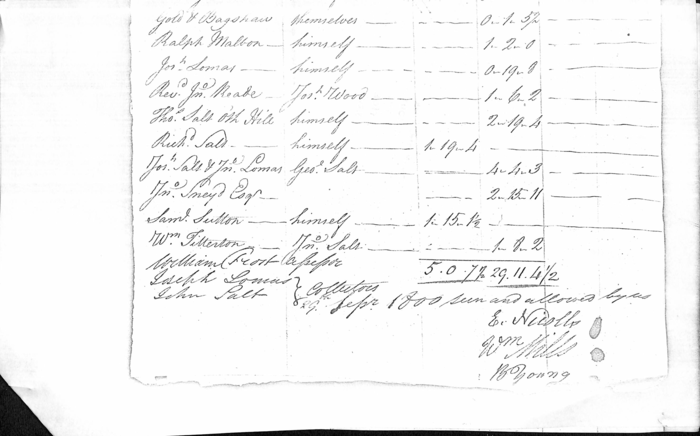 Gold & Bagshaw themselves 0-1-5½
Ralph Malton himself 1-2-0
Josh Lomas himself 0-19-8
Revd Jno Roade Josh Wood 1-6-2
Thos Salt oth Hill himself 2-19-4
Richd Salt himself 1-19-4
Josh Salt & Jno Lomas Geo Salt 4-4-3
Jno Sneyd Esqr 2-15-11
Saml Sutton himself 1-15-1½
Wm Titterton Jno Salt 1-8-2
William Frost Assessor 5-0-7½ 29-11-4½
Joseph Lomas
John Salt } Collectors
29th Sepr 1800 seen and allowed by us
E. Nicolls
Wm Mills
B Young